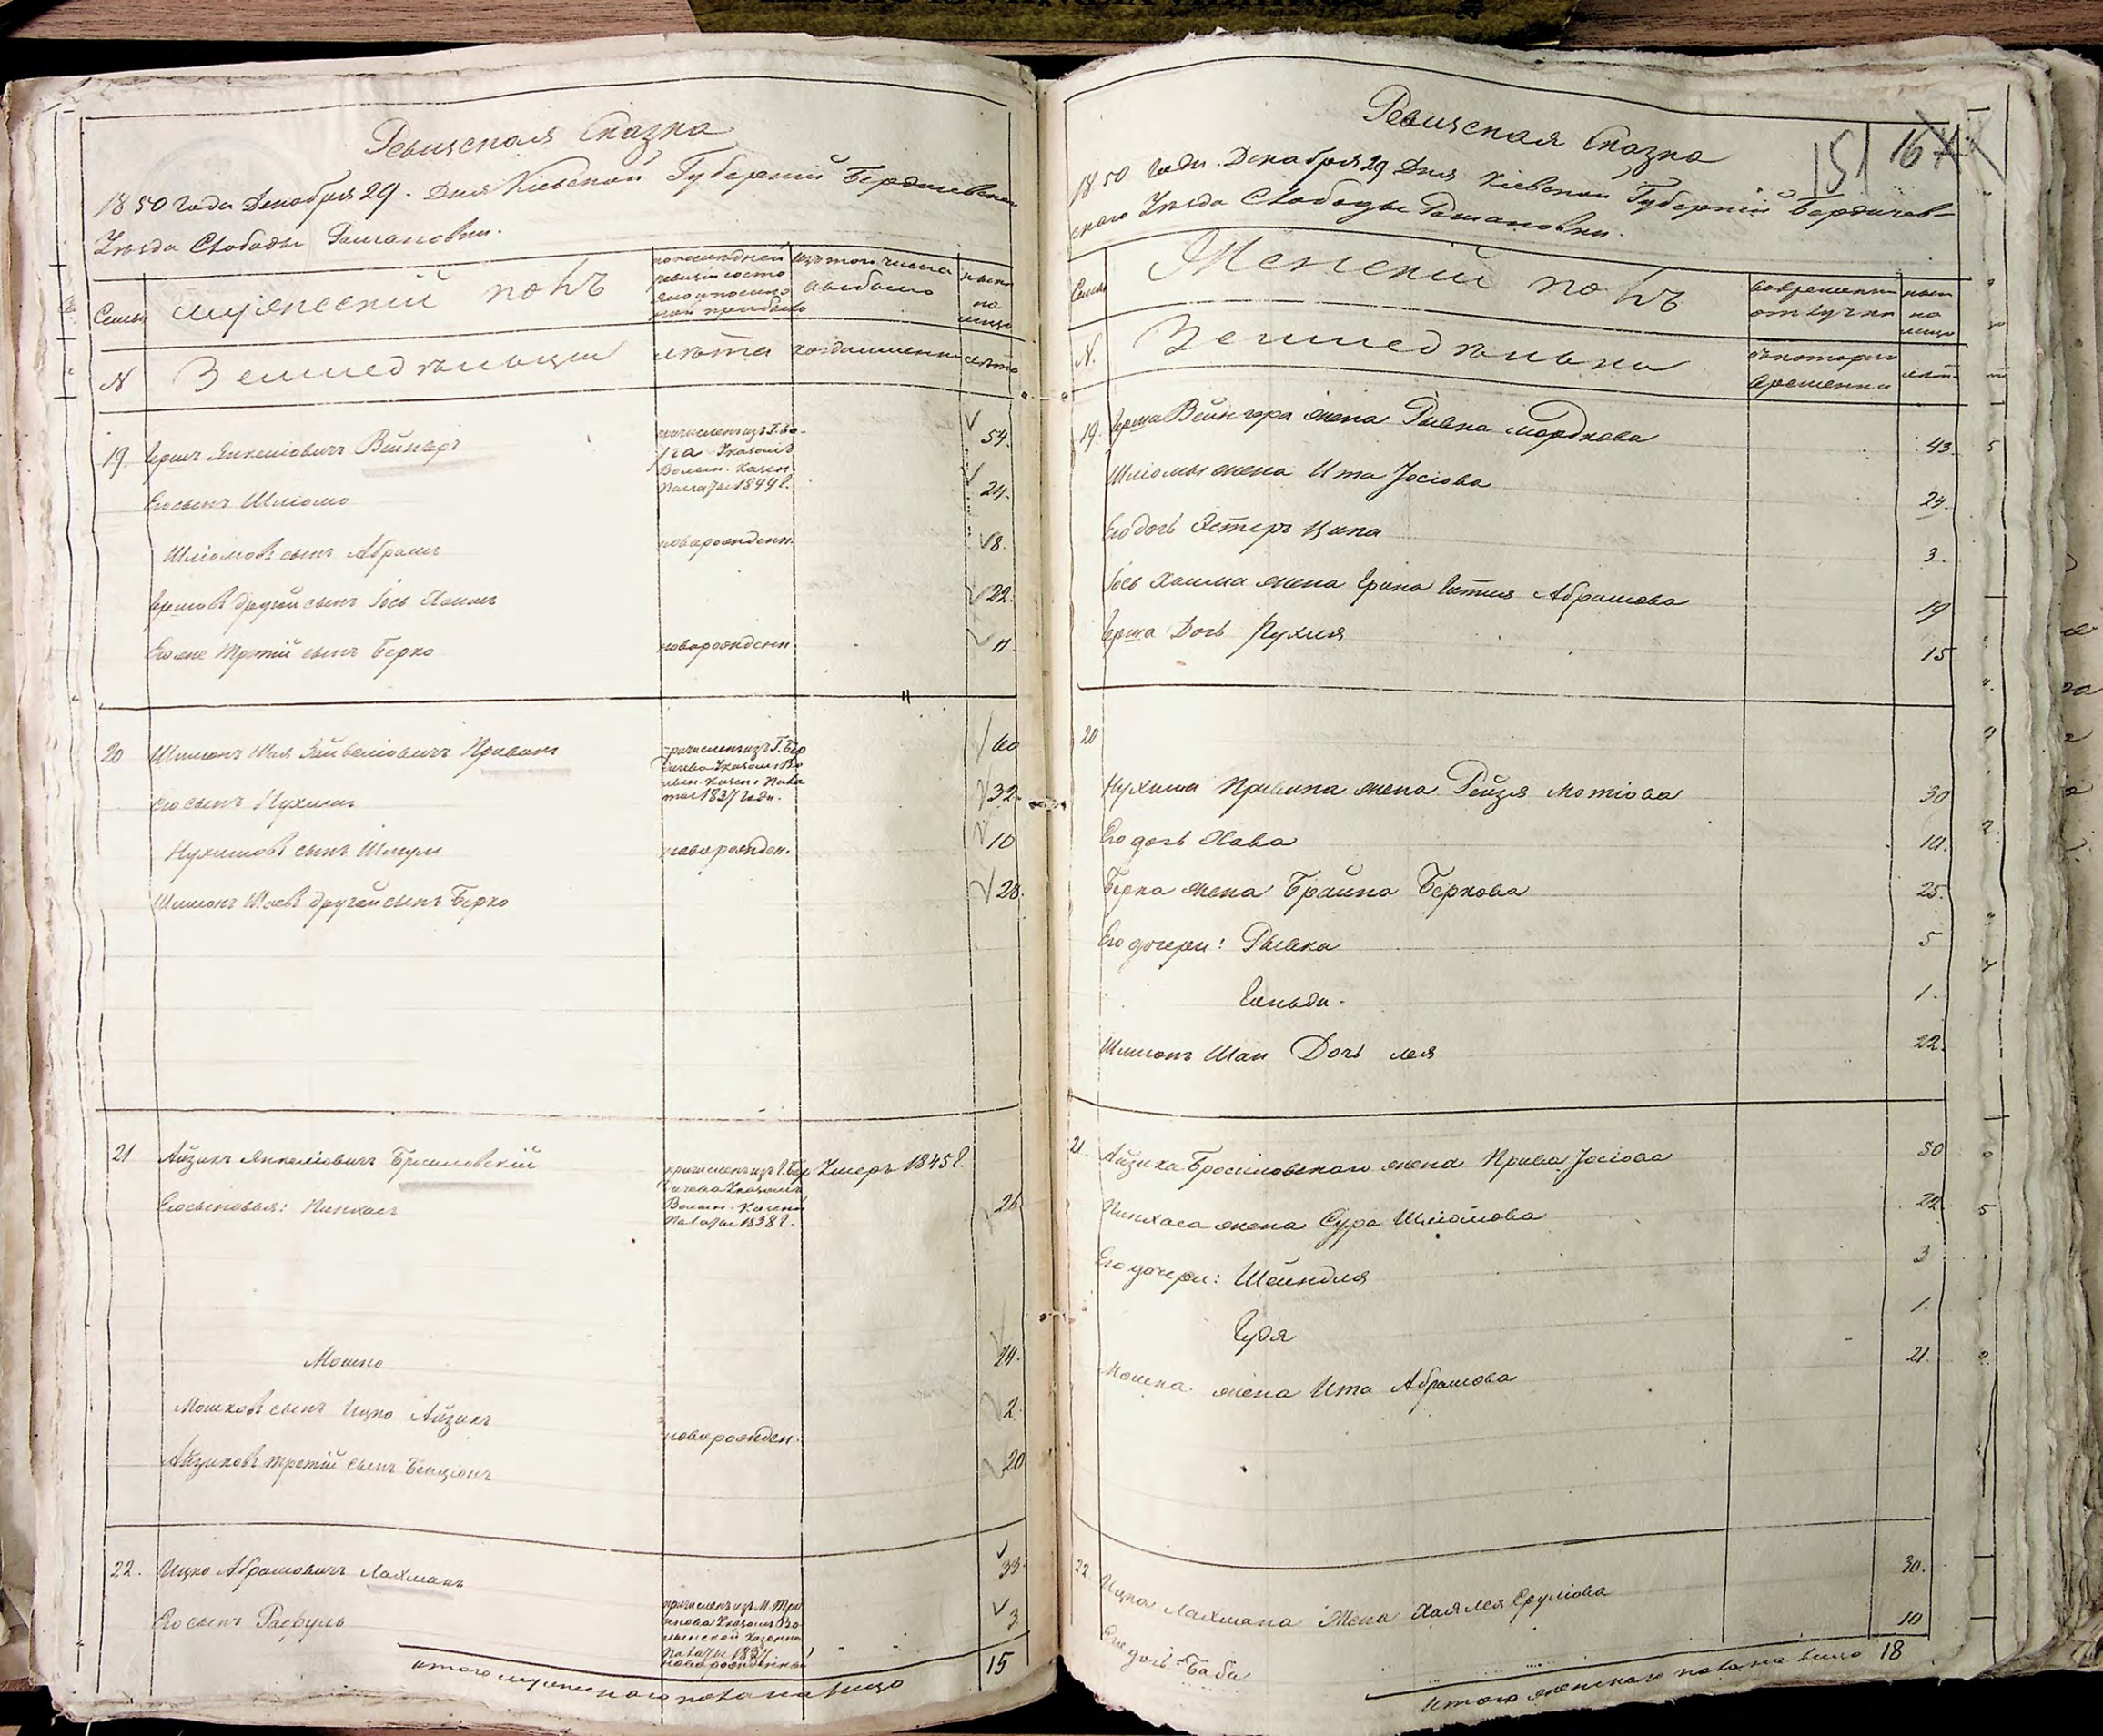 Ревизская Сказка
1850 года Декабря 29. Дня Кіевской Губерніи Бердичевска
Уезда Слободы Романовки.
Семьи
мужескій полъ
по последней
ревизіи состо
яло и после
ной прибыло
изъ того числа
выбыло
ныне
на
лицо
N
Земледельцы
лета
когда именно
лета
19. Гершъ Янкеліовичъ Вайнеръ
54.
Волын. Казен.
Палаты 1844 г.
Его сынъ Шліомо
24.
Шліомовъ сынъ Абрамъ
новорожден.
8.
Гершовъ другой сынъ Іось Хаимъ
22.
Его же третій сынъ Берко
новорожден
11
20 Шимонъ Шая Зайвеліовичъ Привинъ
60
причисленъ изъ Г. Бер
дичева Указомъ Во
лын. Казен. Пала
ты 1837 года.
Его сынъ Нухимъ
32.
Нухимовъ сынъ Шмуль
новорожден.
10
Шимонъ Шаевъ другой сынъ Берко
28.
21 Айзикъ Янкеліовичъ Брасиловскій
причисленъ изъ Г. Бер
дичева Указомъ
Волын. Казен
Палаты 1838 г.
Умеръ 1845 г.
Его сыновья: Пинхасъ
26
Мошко
24.
Мошковъ сынъ Ицко Айзикъ
новорожден.
2.
Айзиковъ третій сынъ Бенціонъ
20
22. Ицко Абрамовичъ Лахманъ
33.
Его сынъ Рафуль
3
причисленъ изъ М. Тро
янова Указомъ Во
лынской Казенно
Палаты 1837
новорожденный
итого мужескаго пола на лицо
15
Ревизская Сказка
151 167
1850 Года. Декабря 29 Дня Кіевской Губерніи Бердичев-
скаго Уезда Слободы Романовки.
Семьи
Женскій полъ
во временной
отлучке
ныне
на
лицо
N.
Земледельки
съ котораго
времени
лета
19. Герша Вайнера жена Рывка Мордкова
43.
Шліомы жена Ита Іосіова
24.
Его дочь Эстеръ Ципа
3.
Іось Хаима жена Ентля Абрамова
19
Герша Дочь Нухля
15
20
Нухима Привина жена Рейзя Мотіова
30
Его дочь Хава
10.
Берка жена Брайна Беркова
25.
Его дочери: Рывка
5
Гольда.
1.
Шимонъ Шаи Дочь Лея
22.
21. Айзика Брасиловскаго жена Прива Іосіова
50
Пинхаса жена Сура Шліомова
22.
Его дочери: Шейндля
3
Гудя
1.
Мошка жена Ита Абрамова
21.
22. Ицка Лахмана Жена Хая Лея Срулiова
30.
Его дочь Баба
10
Итого женскаго пола на лицо 18